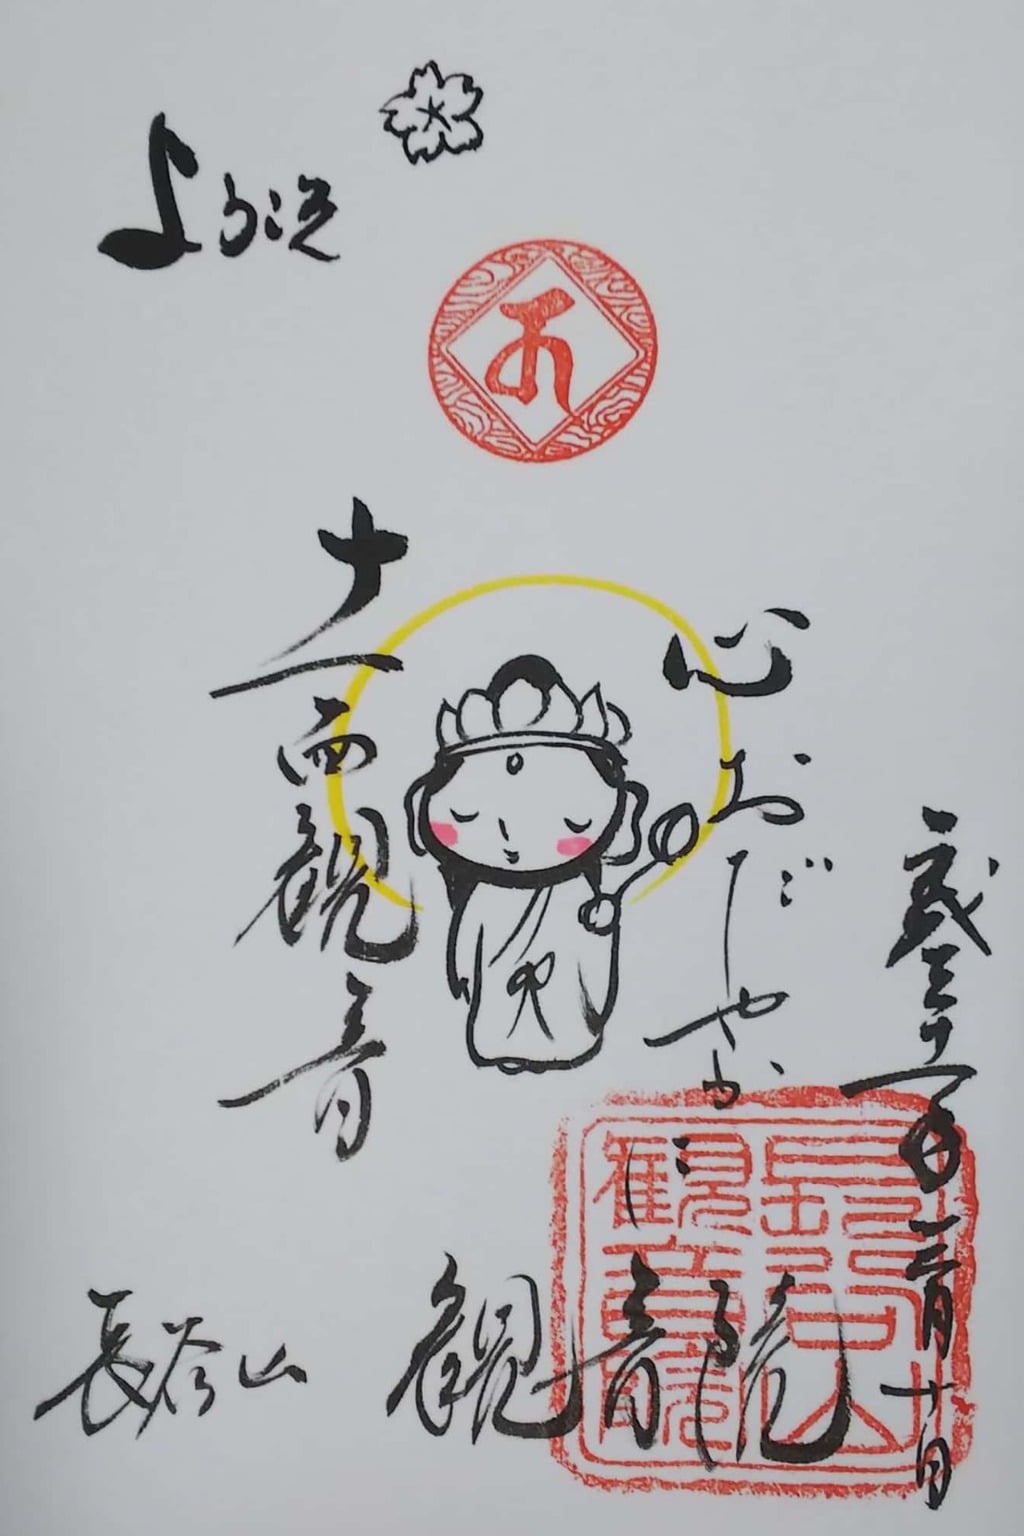 平成三十一年三月十日
心おだやかに
十一面観音
長谷山 観音院
長谷山
観音院